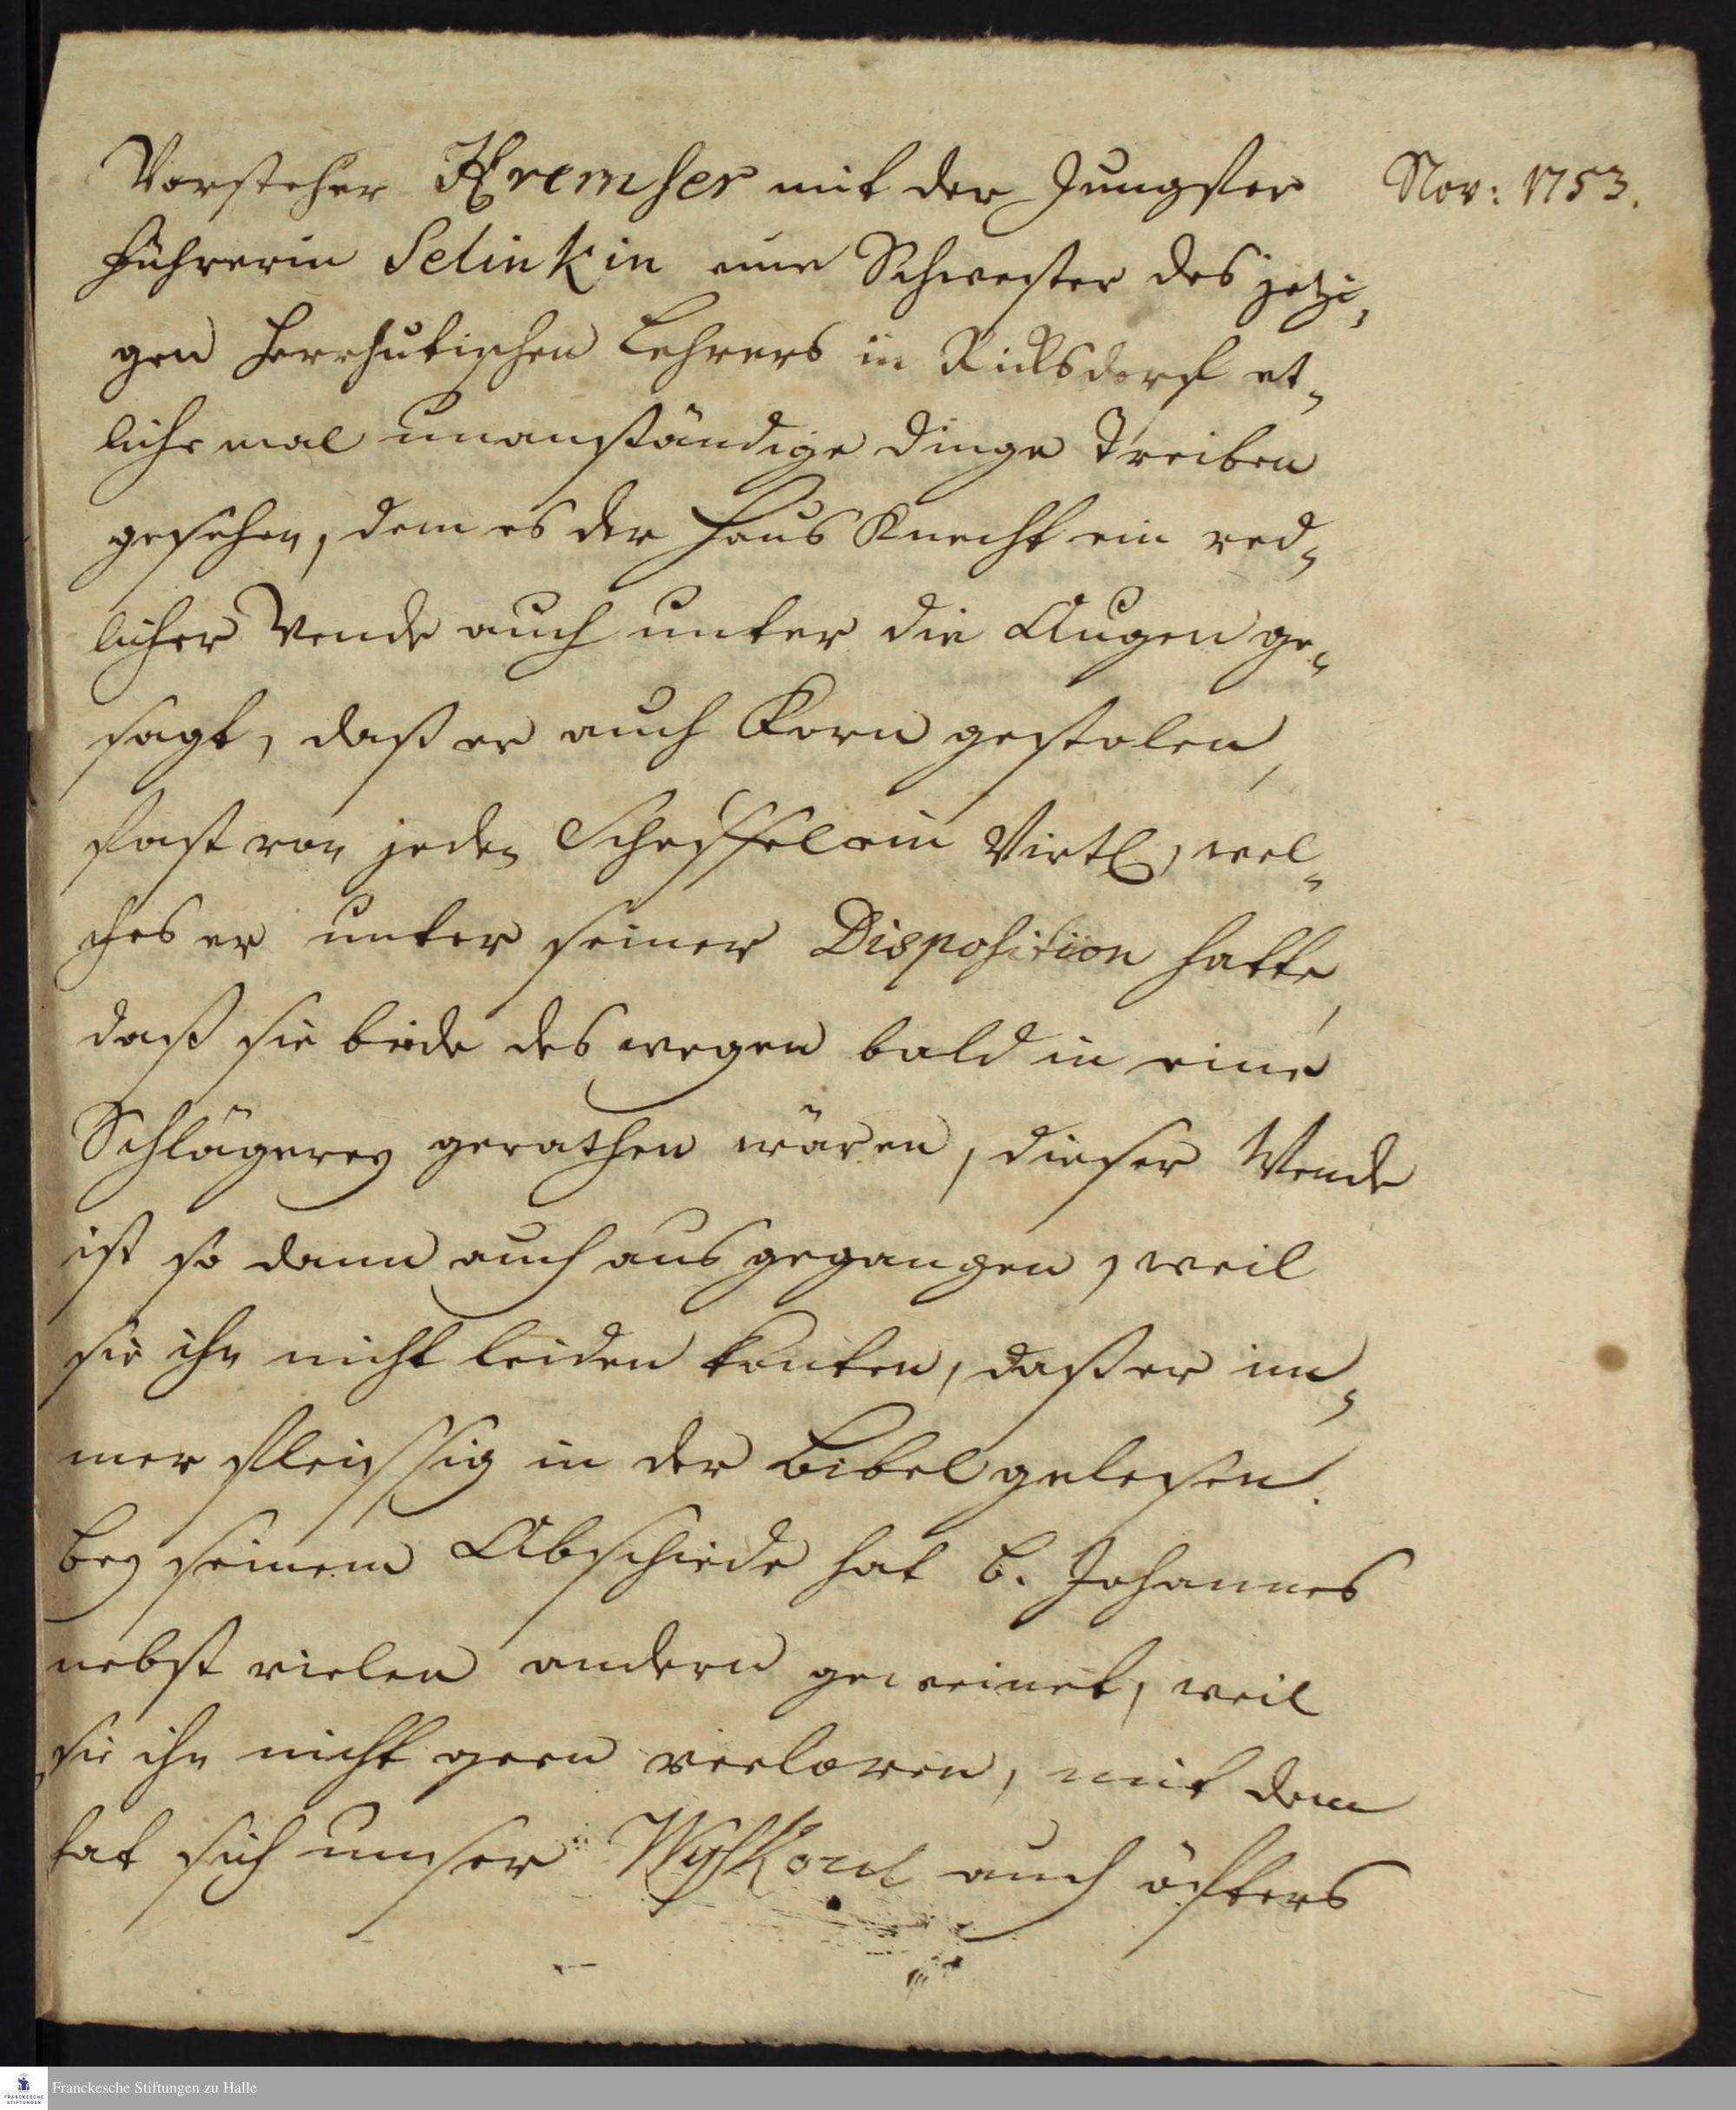 Nov: 1753.
Vorsteher Kremser mit der Jungfer
führerin Selinkin eine Schwester des jetzi,
gen Herrhutischen Lehrers in Ricksdorf et,
liche mal unanständige dinge treiben
gesehen, dem es der Haus Knecht ein red,
licher Wende auch unter die Augen ge,
sagt, daß er auch Korn gestolen,
fast von jeden Scheffel ein Virtl, wel,
ches er unter seiner Disposition hatte,
daß sie beide des wegen bald in eine
Schlägerey gerathen wären, dieser Wende
ist so dann auch aus gegangen, weil
sie ihn nicht leiden konten, daß er im,
mer fleissig in der Bibel gelesen.
bey seinem Abschiede hat b. Johannes
nebst vielen andern geweinet, weil
sie ihn nicht gern verloren, mit dem
hat sich unser auch öfters
Franckesche Stiftungen zu Halle
FRANCKESCHE
STIFTUNGEN